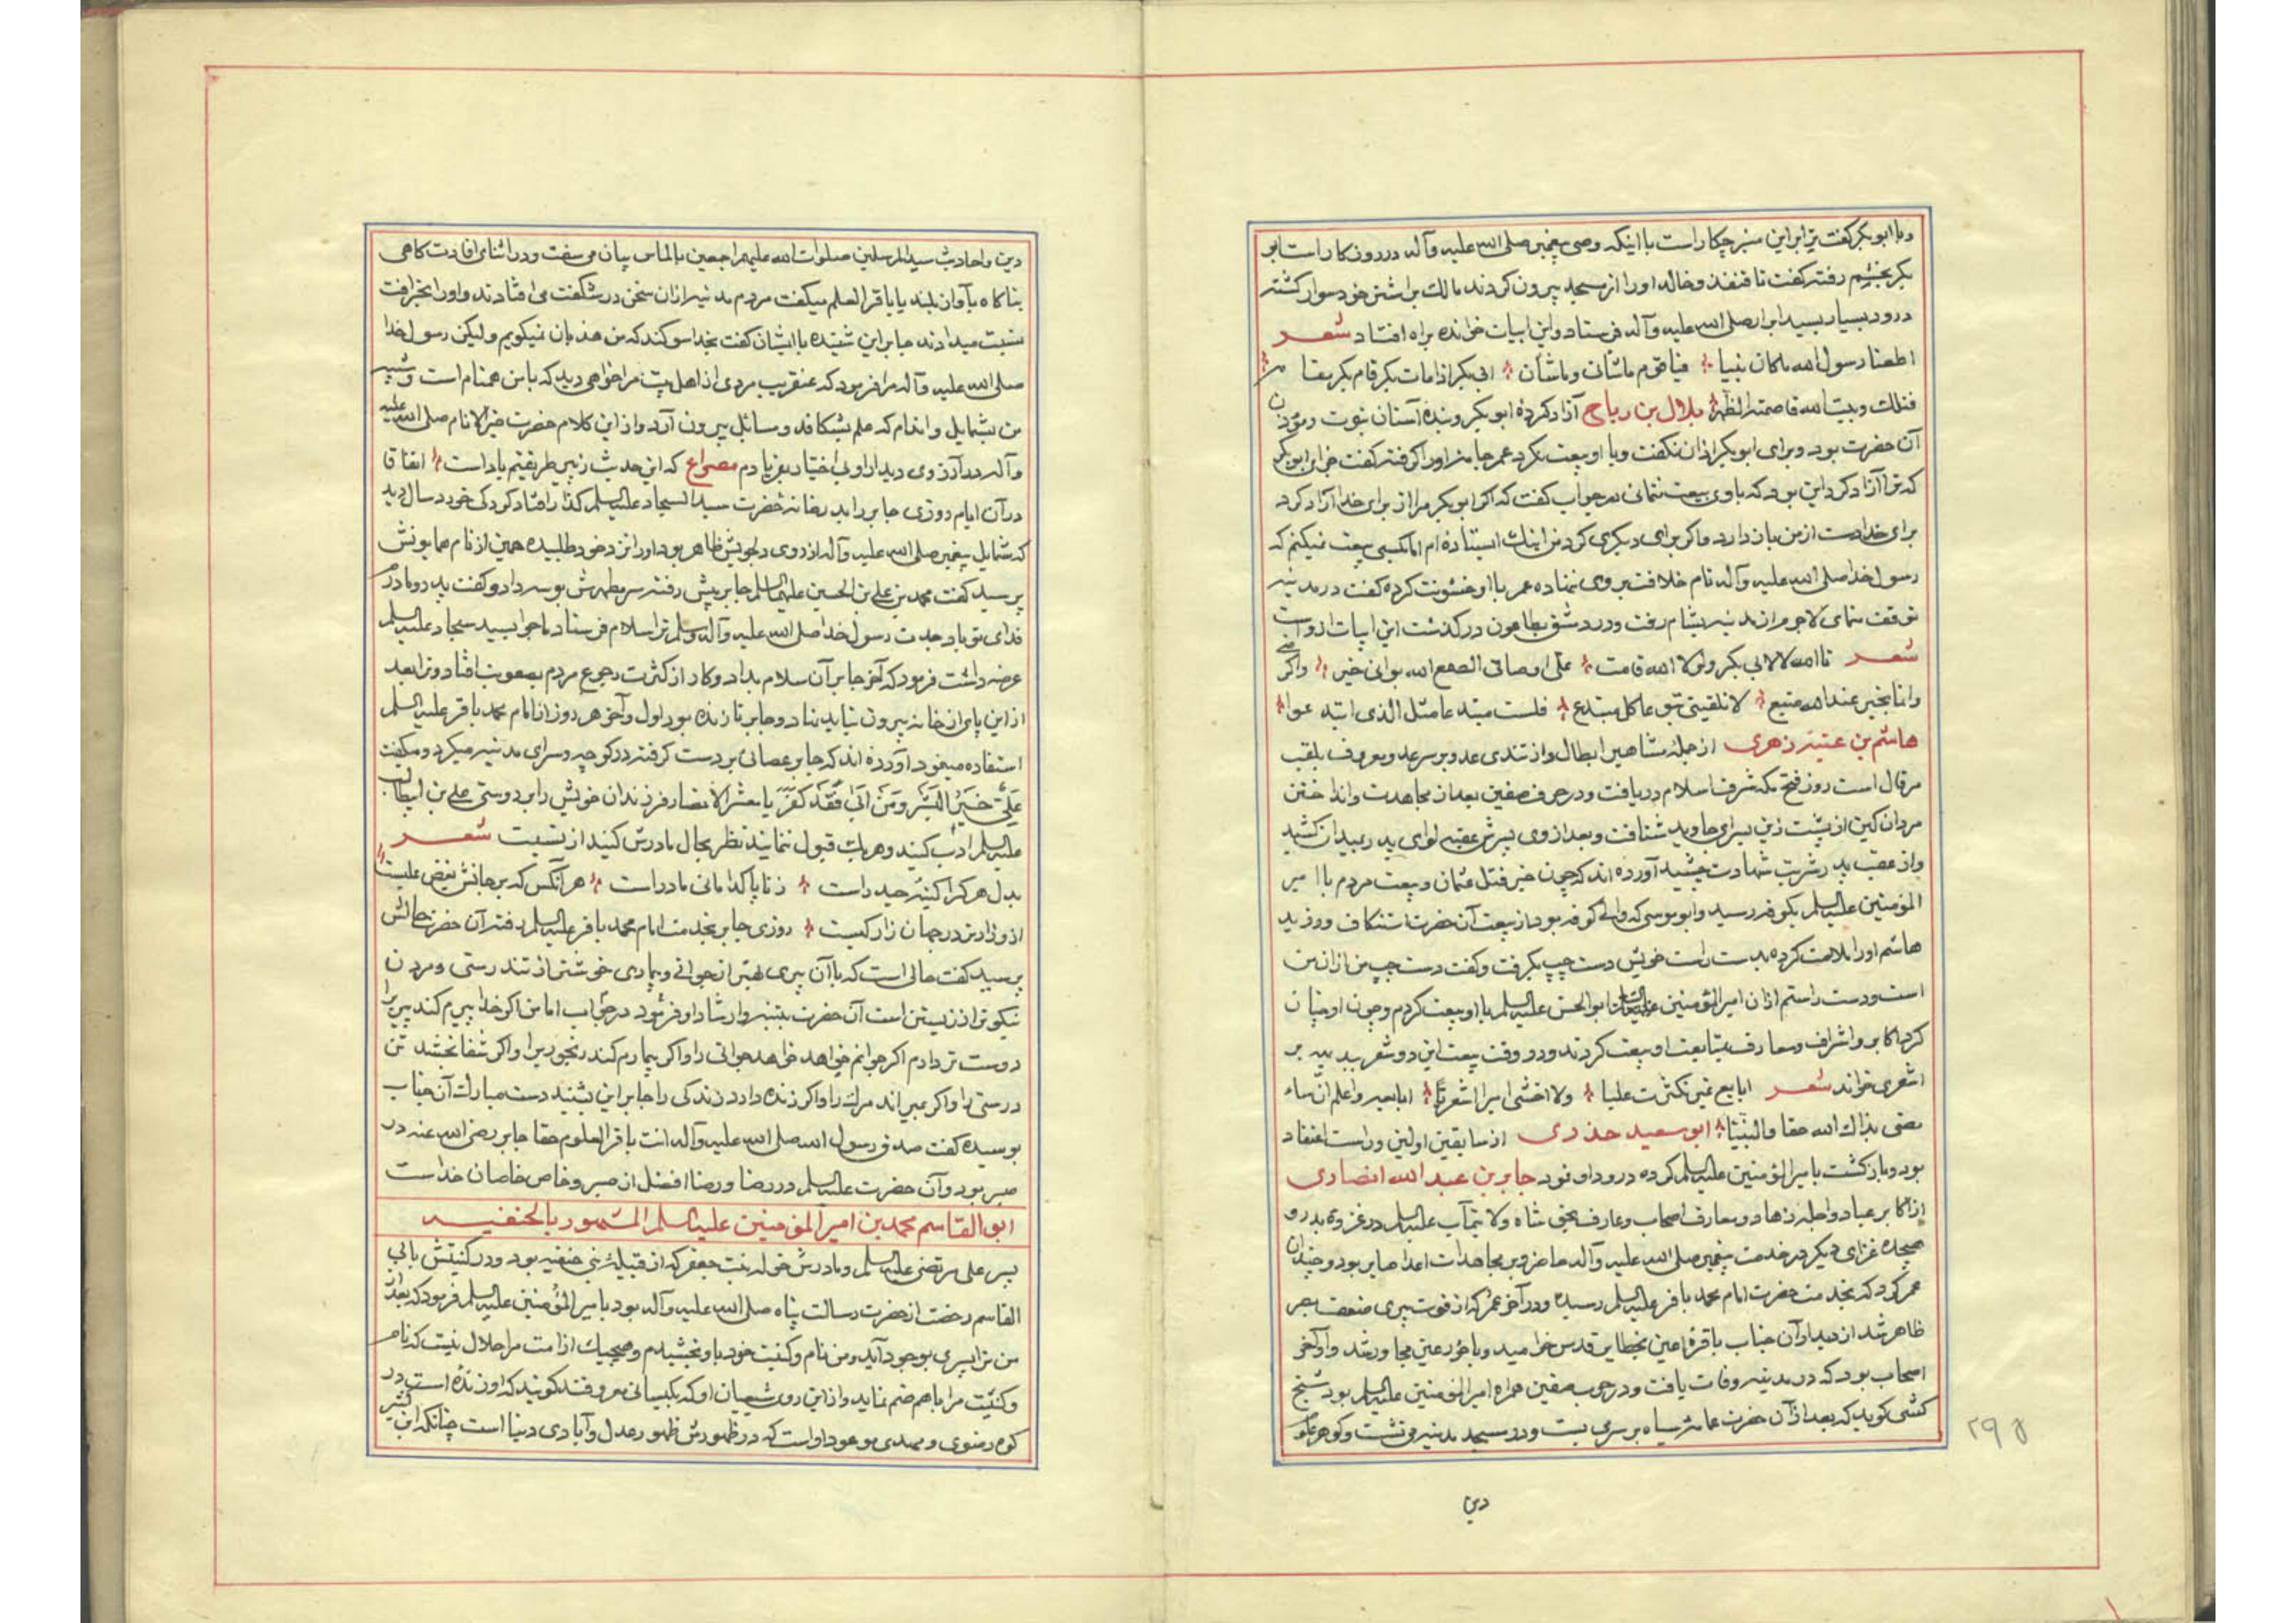 و با ابوبکر گفت ترا بر این منبر چکار است با اینکه وصی پیغمبر صلی الله علیه وآله در درون کار است ابو
بکر بخشم رفته گفت تا قنفذ و خالد او را از مسجد بیرون کردند مالک بر اشتر خود سوار گشته
درود بسیار بسید ابرار صلی الله علیه وآله فرستاد و این ابیات خوانده براه افتاد شعر
اطعنا رسول الله ماکان بیننا فیا قوم ماشأن وماشأن ابی بکر اذا مات بکر قام بکر مقامه
فتلک وبیت الله قاصمة الظهر بلال بن رباح آزاد کردهٔ ابوبکر و بندهٔ آستان نبوت و مؤذن
آن حضرت بود و برای ابوبکر اذان نگفت و با او بیعت نکرد عمر جامهٔ او را گرفته گفت جزای ابوبکر
که ترا آزاد کرد این بود که با وی بیعت ننمائی در جواب گفت که اگر ابوبکر مرا از برای خدا آزاد کرد
برای خدا دست از من باز دارد و اگر برای دیگری کرد من اینک ایستاده ام اما بکسی بیعت نمیکنم که
رسول خدا صلی الله علیه وآله نام خلافت بر وی ننهاده عمر با او خشونت کرده گفت در مدینه
توقف منمای لاجرم از مدینه بشام رفت و در دمشق بطاعون درگذشت این ابیات از اوست
شعر تاالله لا لابی بکر ولولا الله قامت علی اوصالی الضبع الله بوانی خیرا واکرمنی
وانما بخیر عند الله متبع لا تلقینی تبوعا کل مبتدع فلست مبتدعا مثل الذی ابتدعوا
هاشم بن عتبه زهری از جملهٔ مشاهیر ابطال و از تندی عدو بر سر عدو معروف بلقب
مرقال است روز فتح مکه شرف اسلام دریافت و در حرب صفین بعد از مجاهدت و انداختن
مردان کین از پشت زین بسرای جاوید شتافت و بعد از وی پسرش عقبه لوای پدر بمیدان کشید
و از عقب پدر شربت شهادت چشید آورده اند که چون خبر قتل عثمان و بیعت مردم با امیر
المؤمنین علیه السلم بکوفه رسید و ابو موسی که والی کوفه بود از بیعت آن حضرت استنکاف ورزید
هاشم او را ملامت کرده بدست راست خویش دست چپ بگرفت و گفت دست چپ من از آن من
است و دست راستم از آن امیرالمؤمنین ابوالحسن علیه السلم با او بیعت کردم و چون او چنان
کرد اکابر و اشراف و معارف بمتابعت او بیعت کردند و در وقت بیعت این دو شعر بدیهه بر
اشعری خواند شعر ابایع غیر مکترث علیا ولا اخشی امیرا اشعریا ابایعه واعلم ان ساء
رضی بذاک الله حقا والنبیا ابو سعید خدری از سابقین اولین و راست اعتقاد
بود و بازگشت بامیرالمؤمنین علیه السلم کرده درود او نمود جابر بن عبدالله انصاری
از اکابر عباد و اجلهٔ زهاد و معارف اصحاب و عارف بحق شاه ولایتمآب علیه السلم در غزوهٔ بدر و
هیجده غزای دیگر در خدمت پیغمبر صلی الله علیه وآله حاضر و بر مجاهدات اعدا صابر بود و چندان
عمر کرد که بخدمت حضرت امام محمد باقر علیه السلم رسیده و در آخر عمر که از قوت پیری ضعف بصر
ظاهر شد از دیدار آن جناب باقرة العین بخطایر قدس خرامید و با حور عین مجاور شد و او آخر
اصحاب بود که در مدینه وفات یافت و در حرب صفین همراه امیرالمؤمنین علیه السلم بود شیخ
کشی گوید که بعد از آن حضرت عمامهٔ سیاه بر سر می بست و در مسجد مدینه می نشست و گوهر
۲۹۵
دین
دین و احادیث سید المرسلین صلوات الله علیهم اجمعین بالماس بیان می سفت و در اثنای افادت گاهی
بناگاه بآواز بلند یا باقر العلم میگفت مردم مدینه از آن سخن در شگفت می افتادند و او را بخرافت
نسبت میدادند جابر این شنیده با ایشان گفت بخدا سوگند که من هذیان نمیگویم ولیکن رسول خدا
صلی الله علیه وآله مرا فرمود که عنقریب مردی از اهل بیت مرا خواهی دید که با من همنام است و شبیه
من بشمایل و اندام که علم بشکافد و مسائل بیرون آرد و از این کلام حضرت خیر الانام صلی الله علیه
وآله در آرزوی دیدار او بی اختیار بفریادم مصراع که این حدیث ز پیر طریقتم یاد است اتفاقا
در آن ایام روزی جابر را بدر خانه حضرت سید السجاد علیه السلم گذار افتاد کودکی خورد سال دید
که شمایل پیغمبر صلی الله علیه وآله از روی دلجویش ظاهر بود او را نزد خود طلبیده همین از نام همایونش
پرسید گفت محمد بن علی بن الحسین علیهما السلم جابر پیش رفته سر مطهرش بوسه داد و گفت پدر و مادرم
فدای تو باد جدت رسول خدا صلی الله علیه وآله وسلم ترا سلام فرستاد ماجرا بسید سجاد علیه السلم
عرضه داشت فرمود که آخر جابر آن سلام بداد و کار از کثرت رجوع مردم بصعوبت افتاد و ترا بعد
از این پای از خانه بیرون نباید نهاد و جابر تا زنده بود اول و آخر هر روز از امام محمد باقر علیه السلم
استفاده مینمود آورده اند که جابر عصائی بر دست گرفته در کوچه و سرای مدینه میگردد و میگفت
عَلِیٌّ خَیْرُ البَشَرِ وَمَنْ اَبی فَقَدْ کَفَرَ یا معشر الانصار فرزندان خویش را بر دوستی علی بن ابیطالب
علیه السلم ادب کنید و هر یک قبول ننماید نظر بحال مادرش کنید از نسبت شعر
بدل هر کرا کینهٔ حیدر است ز ناپاکدامانی مادر است هر آنکس که بر جانش بغض علیست
از او زارتر در جهان زار کیست روزی جابر بخدمت امام محمد باقر علیه السلم رفته آن حضرت حالش
پرسید گفت حالی است که با آن پیری بهتر از جوانی و بیماری خوشتر از تندرستی و مردن
نیکوتر از زیستن است آن حضرت بتنبیه و ارشاد او فرمود در جواب اما من اگر خدا پیرم کند پیری را
دوست تر دارم اگر جوانم خواهد خواهد جوانی را و اگر بیمارم کند رنجوری را و اگر شفا بخشد تن
درستی را و اگر بمیراند مرگ را و اگر زنده دارد زندگی را جابر این بشنید دست مبارک آن جناب
بوسیده گفت صدق رسول الله صلی الله علیه وآله انت باقر العلوم حقا جابر رضی الله عنه در
صبر بود و آن حضرت علیه السلم در رضا و رضا افضل از صبر و خاص خاصان خداست
ابو القاسم محمد بن امیر المؤمنین علیه السلم المشهور بالحنفیه
پسر علی مرتضی علیه السلم و مادرش خوله بنت جعفر که از قبیلهٔ بنی حنفیه بود و در کنیتش بابی
القاسم رخصت از حضرت رسالت پناه صلی الله علیه وآله بود بامیر المؤمنین علیه السلم فرمود که بعد از
من ترا پسری بوجود آید و من نام و کنیت خود باو بخشیدم و هیچیک از امت مرا حلال نیست که نام
و کنیت مرا با هم ضم نماید و از این روی شیعیان او که بکیسانی معروفند گویند که او زنده است در
کوه رضوی و مهدی موعود او است که در ظهورش ظهور عدل و آبادی دنیا است چنانکه ابن کثیر